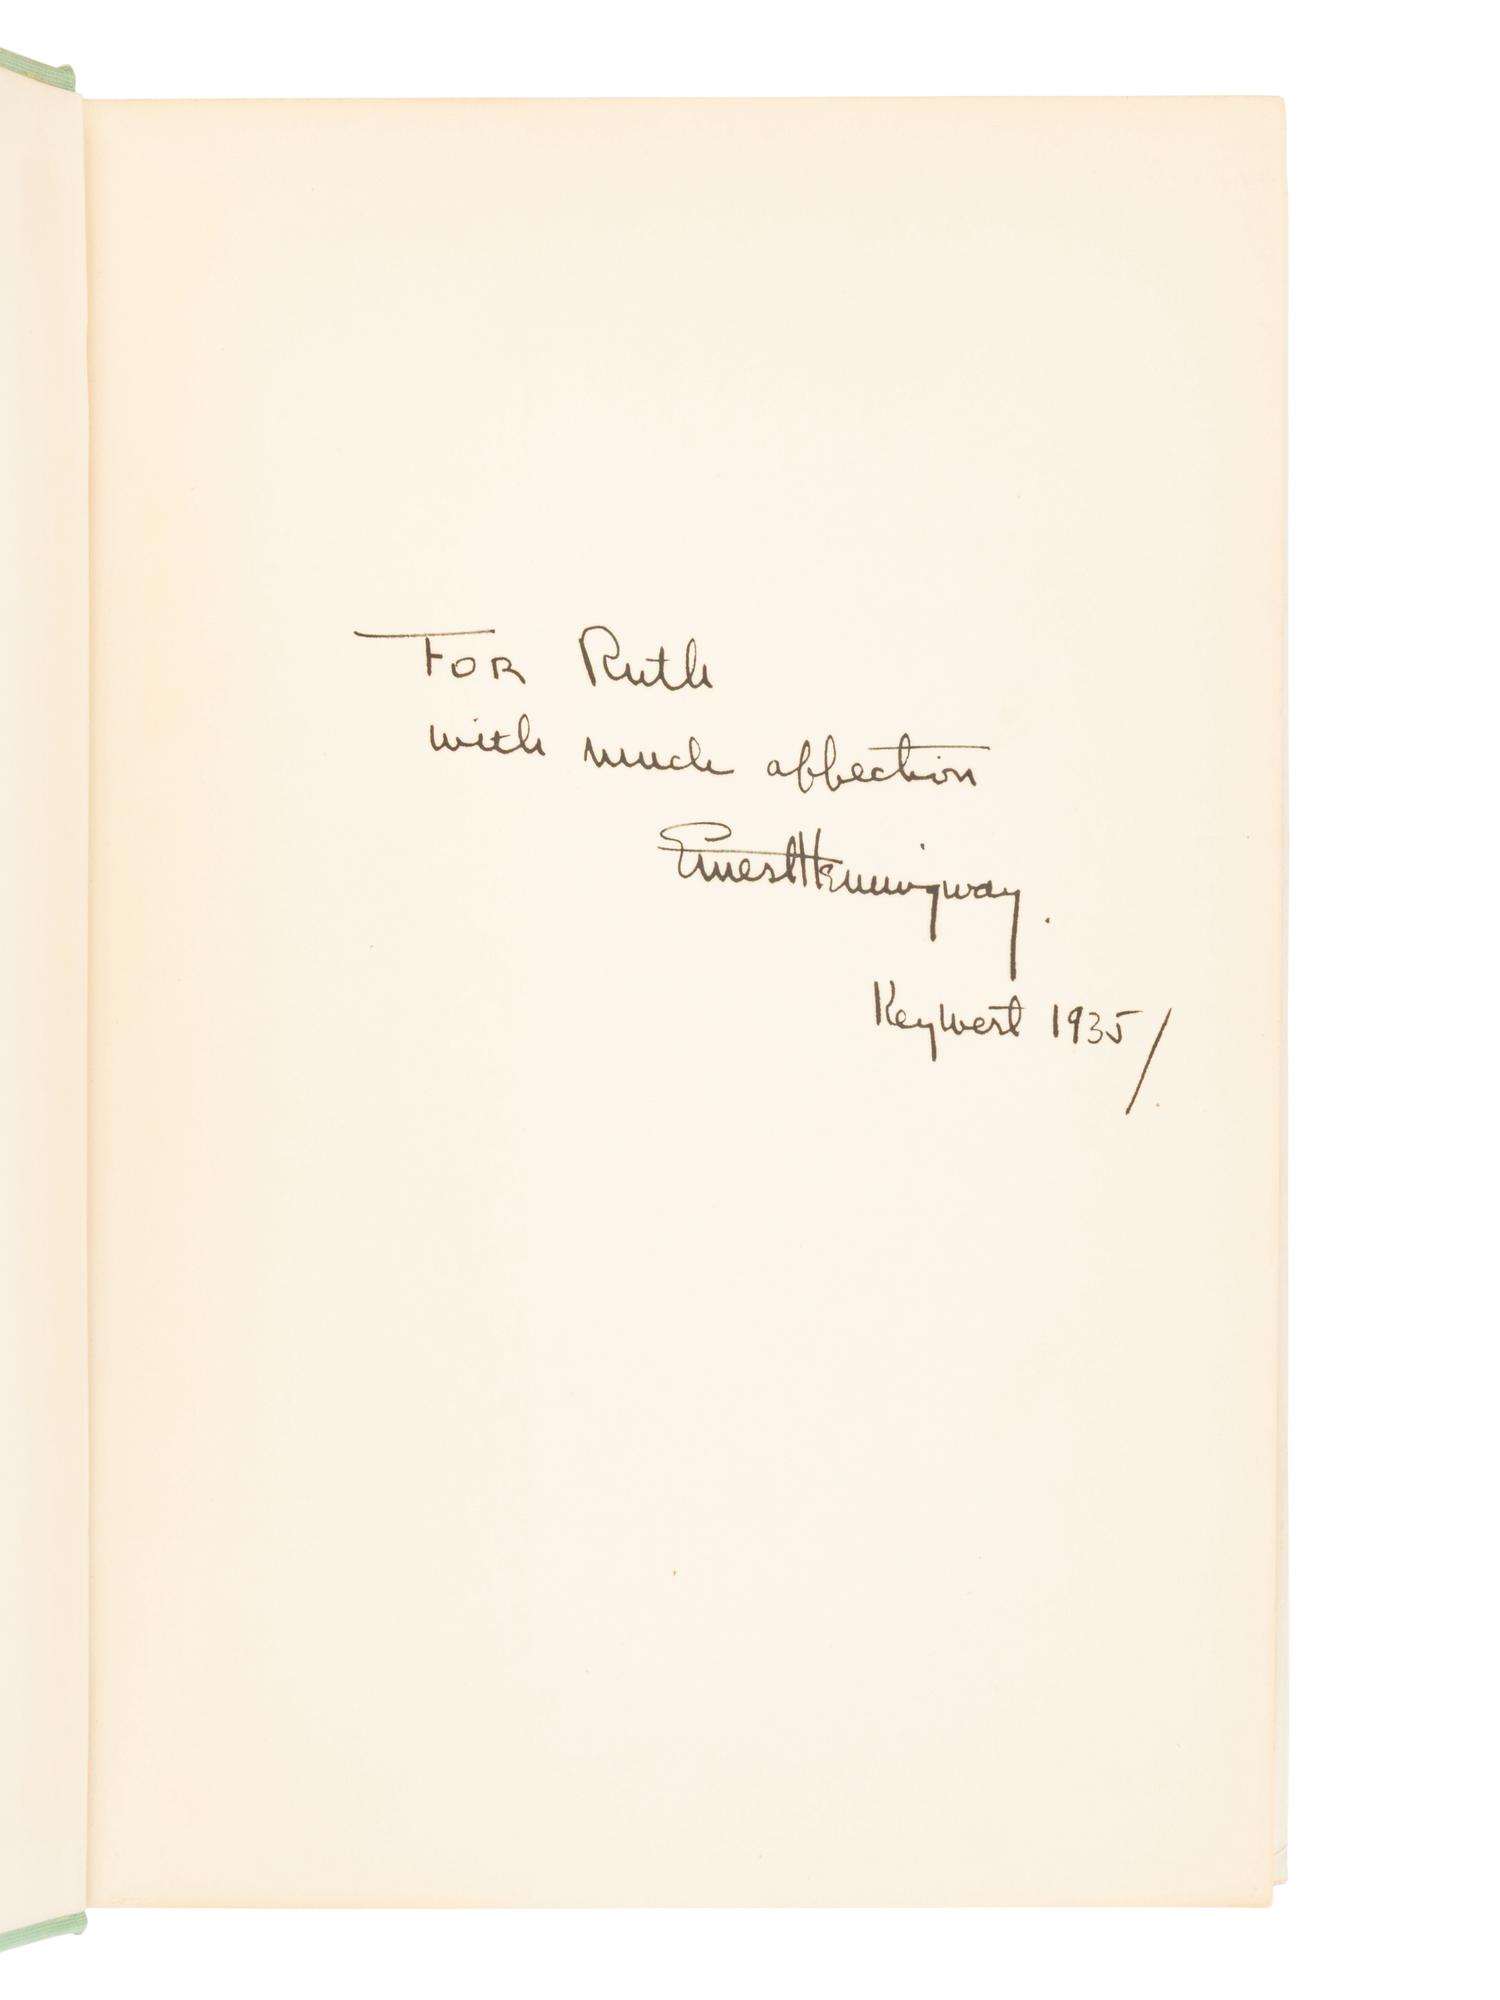 For Ruth
with much affection
Ernest Hemingway.
Key West 1935/